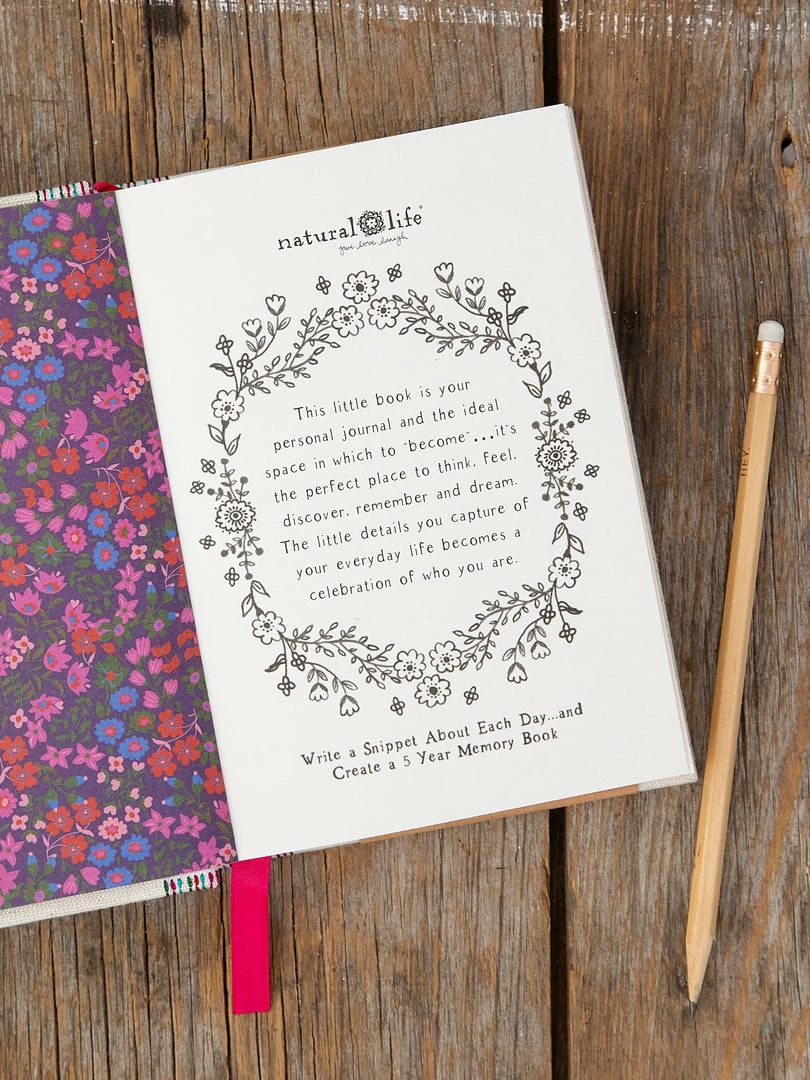 natural life®
give love laugh.
This little book is your
personal journal and the ideal
space in which to "become"...it's
the perfect place to think, feel,
discover, remember and dream.
The little details you capture of
your everyday life becomes a
celebration of who you are.
Write a Snippet About Each Day...and
Create a 5 Year Memory Book
HEY.